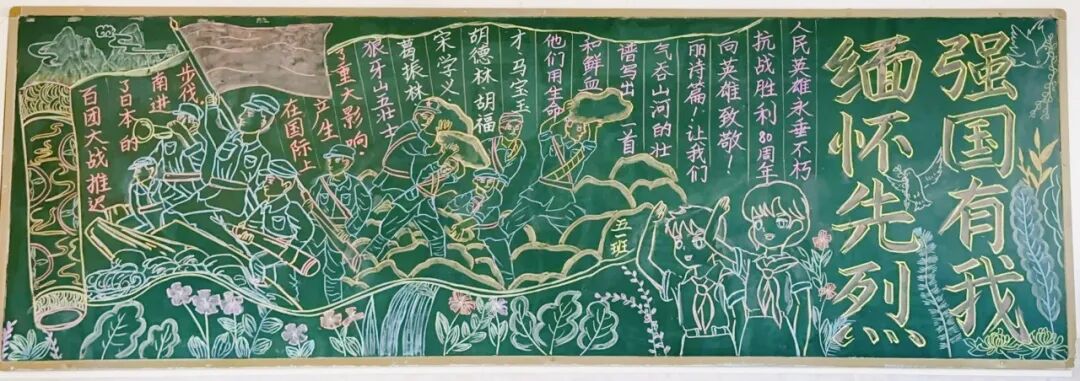 百团大战推迟
了日本的
南进
步伐，
在国际上
产生
了重大影响。
狼牙山五壮士
葛振林
宋学义、
胡德林.胡福
才马宝玉
他们用生命
和鲜血
谱写出一首
气吞山河的壮
丽诗篇！让我们
向英雄致敬！
抗战胜利80周年
人民英雄永垂不朽
缅怀先烈
强国有我
五班